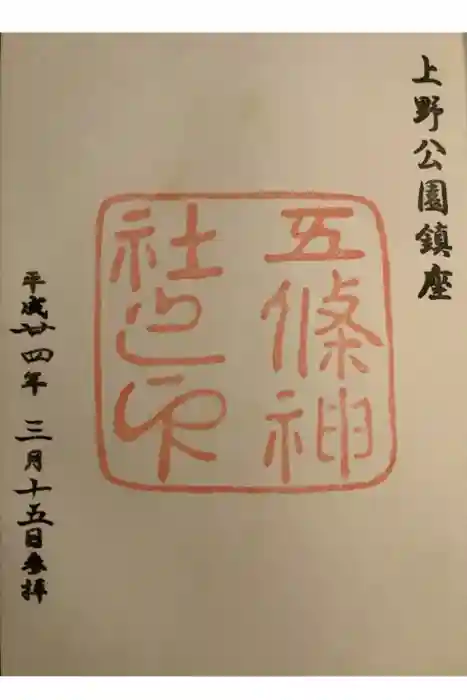 上野公園鎮座
五條神
社之印
平成廿四年 三月十五日参拝